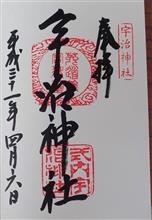 宇治神社
奉拝
宇治神社
平成三十一年四月六日